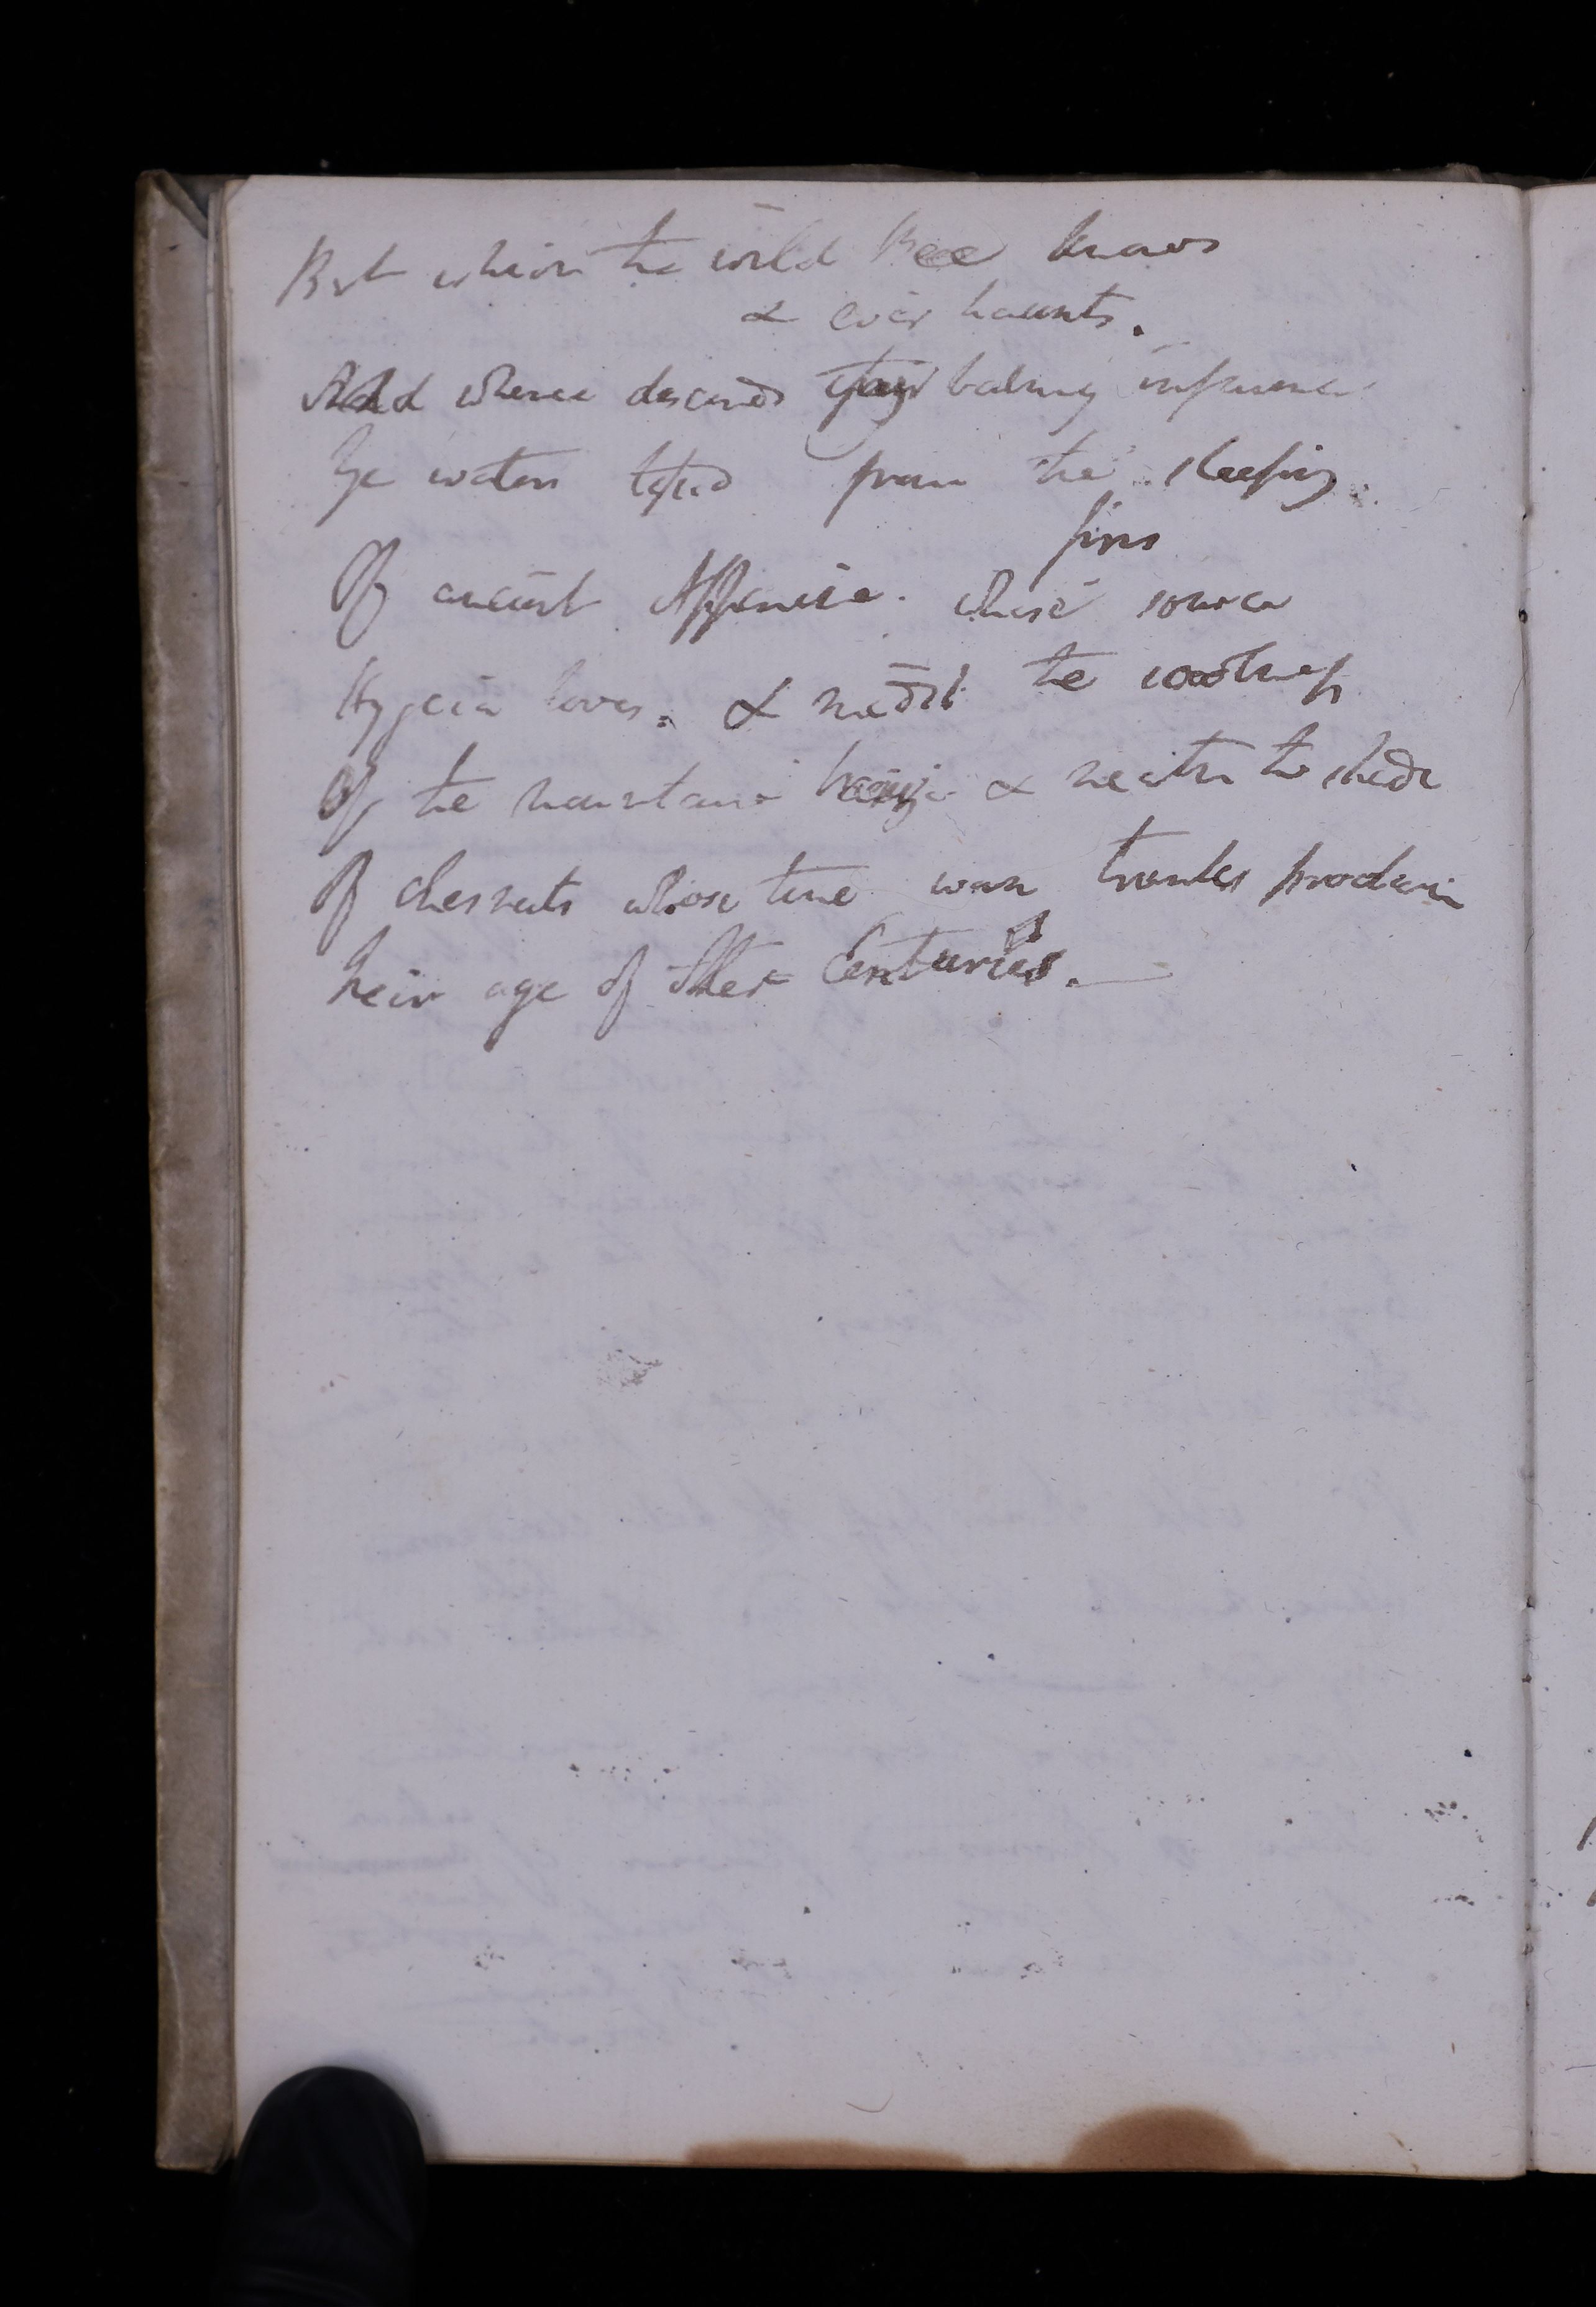 But whiom the wild Bee knows
& ever haunts.
And whence descends your balmy influence
Ye waters tepid from the sleeping
fires
Of ancient Appenine. whose source
Hygeia loves. & midst the
Of the mountain & neath the shade
Of chesnuts whose time worn trunks proclaim
heir age of other Centuries.